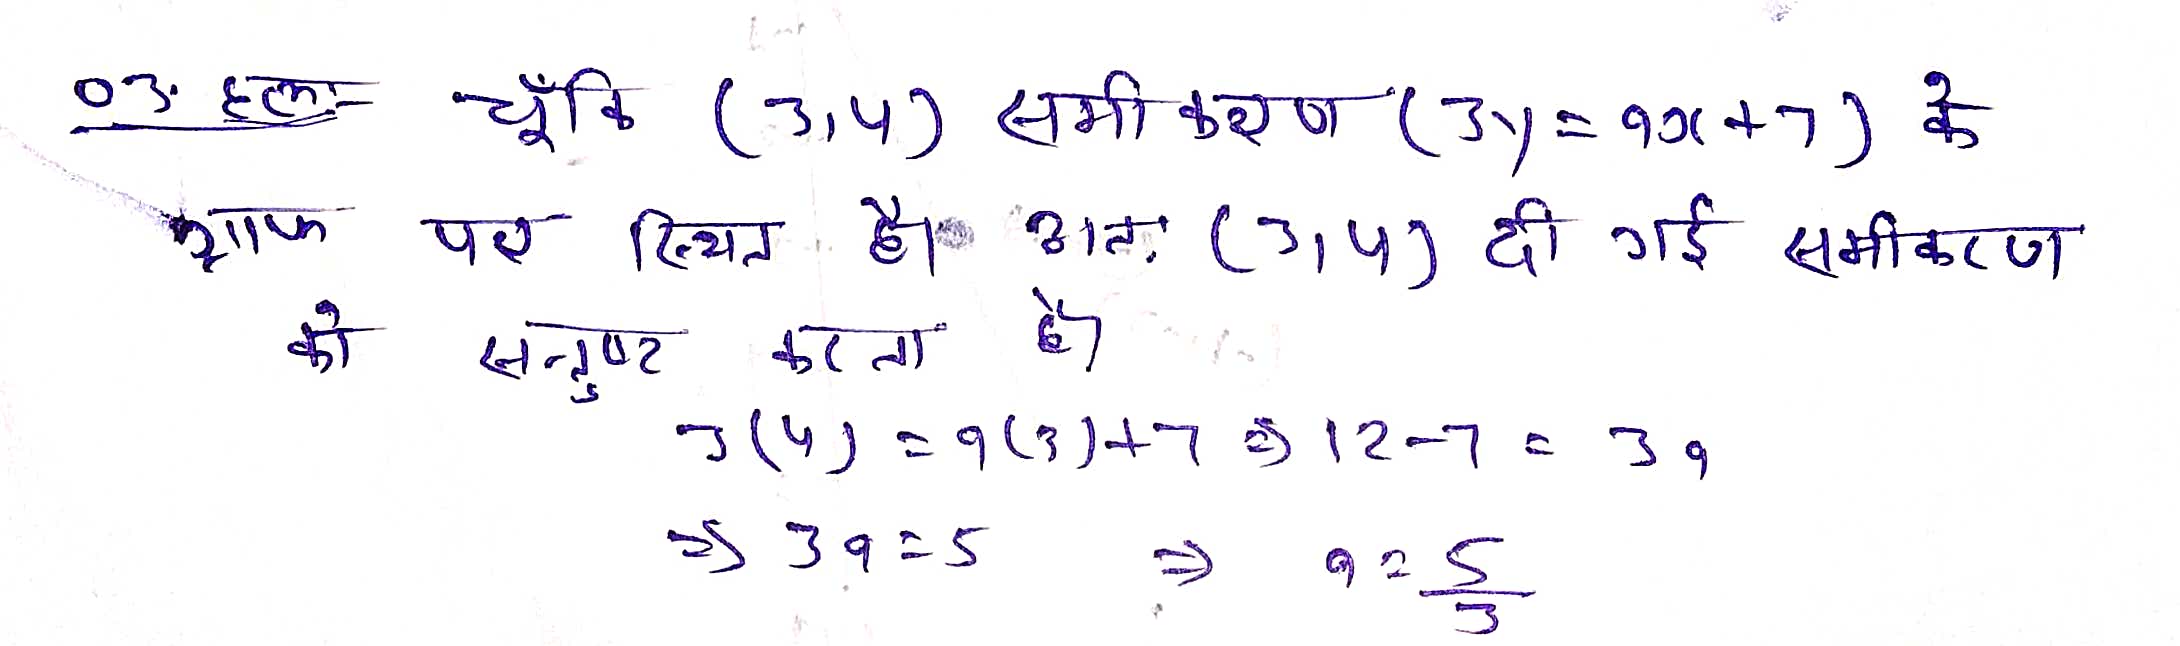 03. हल:- चूँकि (3,4) समीकरण (3y = ax + 7) के
ग्राफ पर स्थित है। अत: (3,4) दी गई समीकरण
को सन्तुष्ट करता है।
3(4) = a(3)+7 ⇒ 12-7 = 3a
⇒ 3a = 5 ⇒ a = 5/3